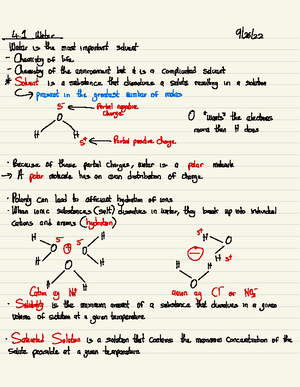 4.1 Water 9/26/22
Water is the most important solvent
- Chemistry of life
- Chemistry of the environment but it is a complicated solvent
* Solvent is a substance that dissolves a solute resulting in a solution
present in the greatest number of moles
δ⁻ Partial negative charge
O
H H
δ⁺ Partial positive charge
O "wants" the electrons
more than H does
· Because of these partial charges, water is a polar molecule
→ A polar molecule has an even distribution of charge.
· Polarity can lead to efficient hydration of ions
· When ionic substances (salt) dissolves in water, they break up into individual
cations and anions (hydration)
H H
O δ⁻ + δ⁻ O
H H
O
H H
Cation eg
δ⁺
H O
H
δ⁺
−
H H
O
anion eg Cl⁻ or NO₃⁻
· Solubility is the maximum amount of a substance that dissolves in a given
volume of solution at a given temperature
· Saturated Solution is a solution that contains the maximum concentration of the
solute possible at a given temperature.